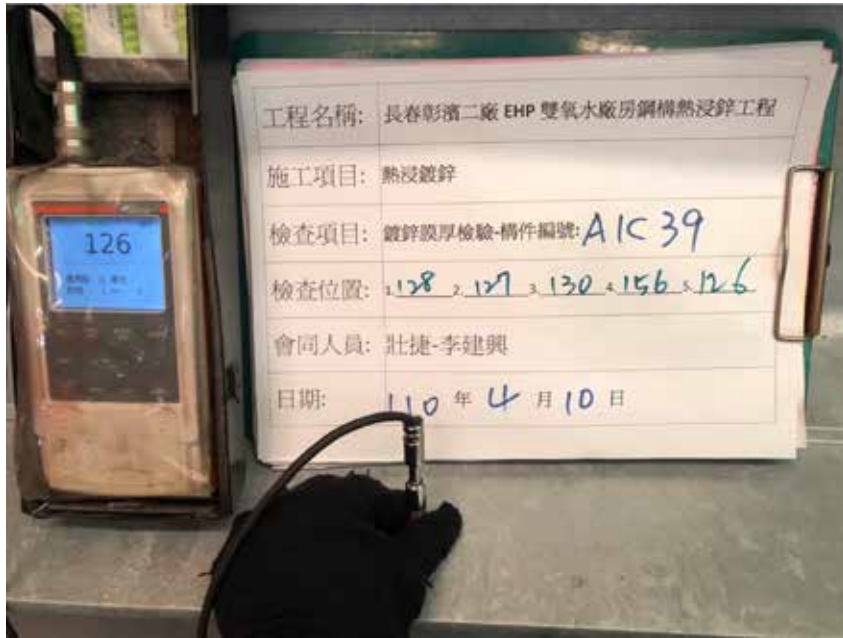 126
工程名稱: 長春彰濱二廠 EHP 雙氧水廠房鋼構熱浸鋅工程
施工項目: 熱浸鍍鋅
檢查項目: 鍍鋅膜厚檢驗-構件編號: A1C39
檢查位置: 1.128 2.127 3.130 4.156 5.126
會同人員: 壯捷-李建興
日期: 110 年 4 月 10 日